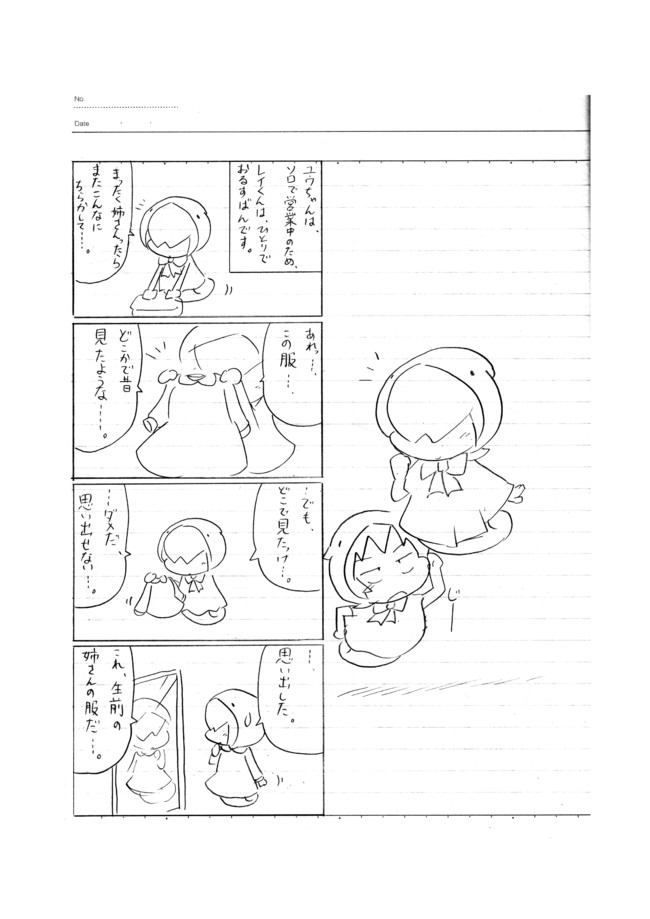 No.
Date
ユウちゃんは、
ソロで営業中のため、
レイくんは、ひとりで
おるすばんです。
まったく姉さんったら
またこんなに
ちらかして…。
あれっ…、
この服…、
どこかで昔
見たような……。
…でも、
どこで見たっけ…。
…ダメだ、
思い出せない…。
…、
思い出した。
これ、生前の
姉さんの服だ…。
じー